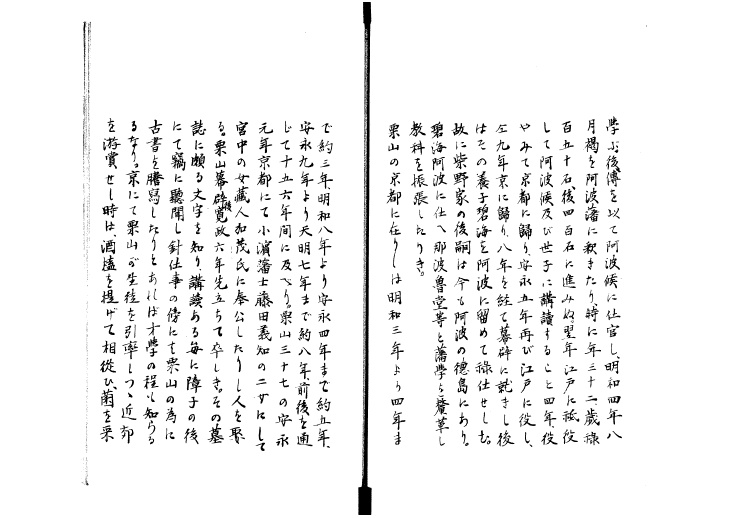 學ぶ、後傳を以て阿波候に仕官し、明和四年八
月褐を阿波藩に釈きたり、時に年三十二歳祿
百五十石後四百石に進みぬ、翌年江戸に祗役
して阿波候及び世子に講讀すること四年、役
やみて京都に歸り、安永五年再び江戸に役し、
仝九年京に歸り、八年を経て幕辟に就きし後
はその養子碧海を阿波に留めて祿仕せしむ。
故に柴野家の後嗣は今も阿波の德島にあり。
碧海阿波に仕へ那波魯堂等と藩學を釐革し
教科を振張したりき。
栗山の京都に在りしは明和三年より四年ま
で約三年、明和八年より安永四年まで約五年、
安永九年より天明七年まで約八年、前後を通
じて十五六年間に及べり。栗山三十七の安永
元年京都にて小濱藩士藤田義知の二女にして
宮中の女藏人加茂氏に奉公したりし人を娶
る。栗山幕辟後寛政六年先立ちて卒しき。その墓
誌に頗る文字を知り、講讀ある毎に障子の後
にて竊に聽聞し針仕事の傍にも栗山の為に
古書を謄寫したりとあれば才學の程も知らる
るなり。京にて栗山が生徒を引率しつゝ近郊
を游賞せし時は、酒榼を提げて相從ひ、菌を采